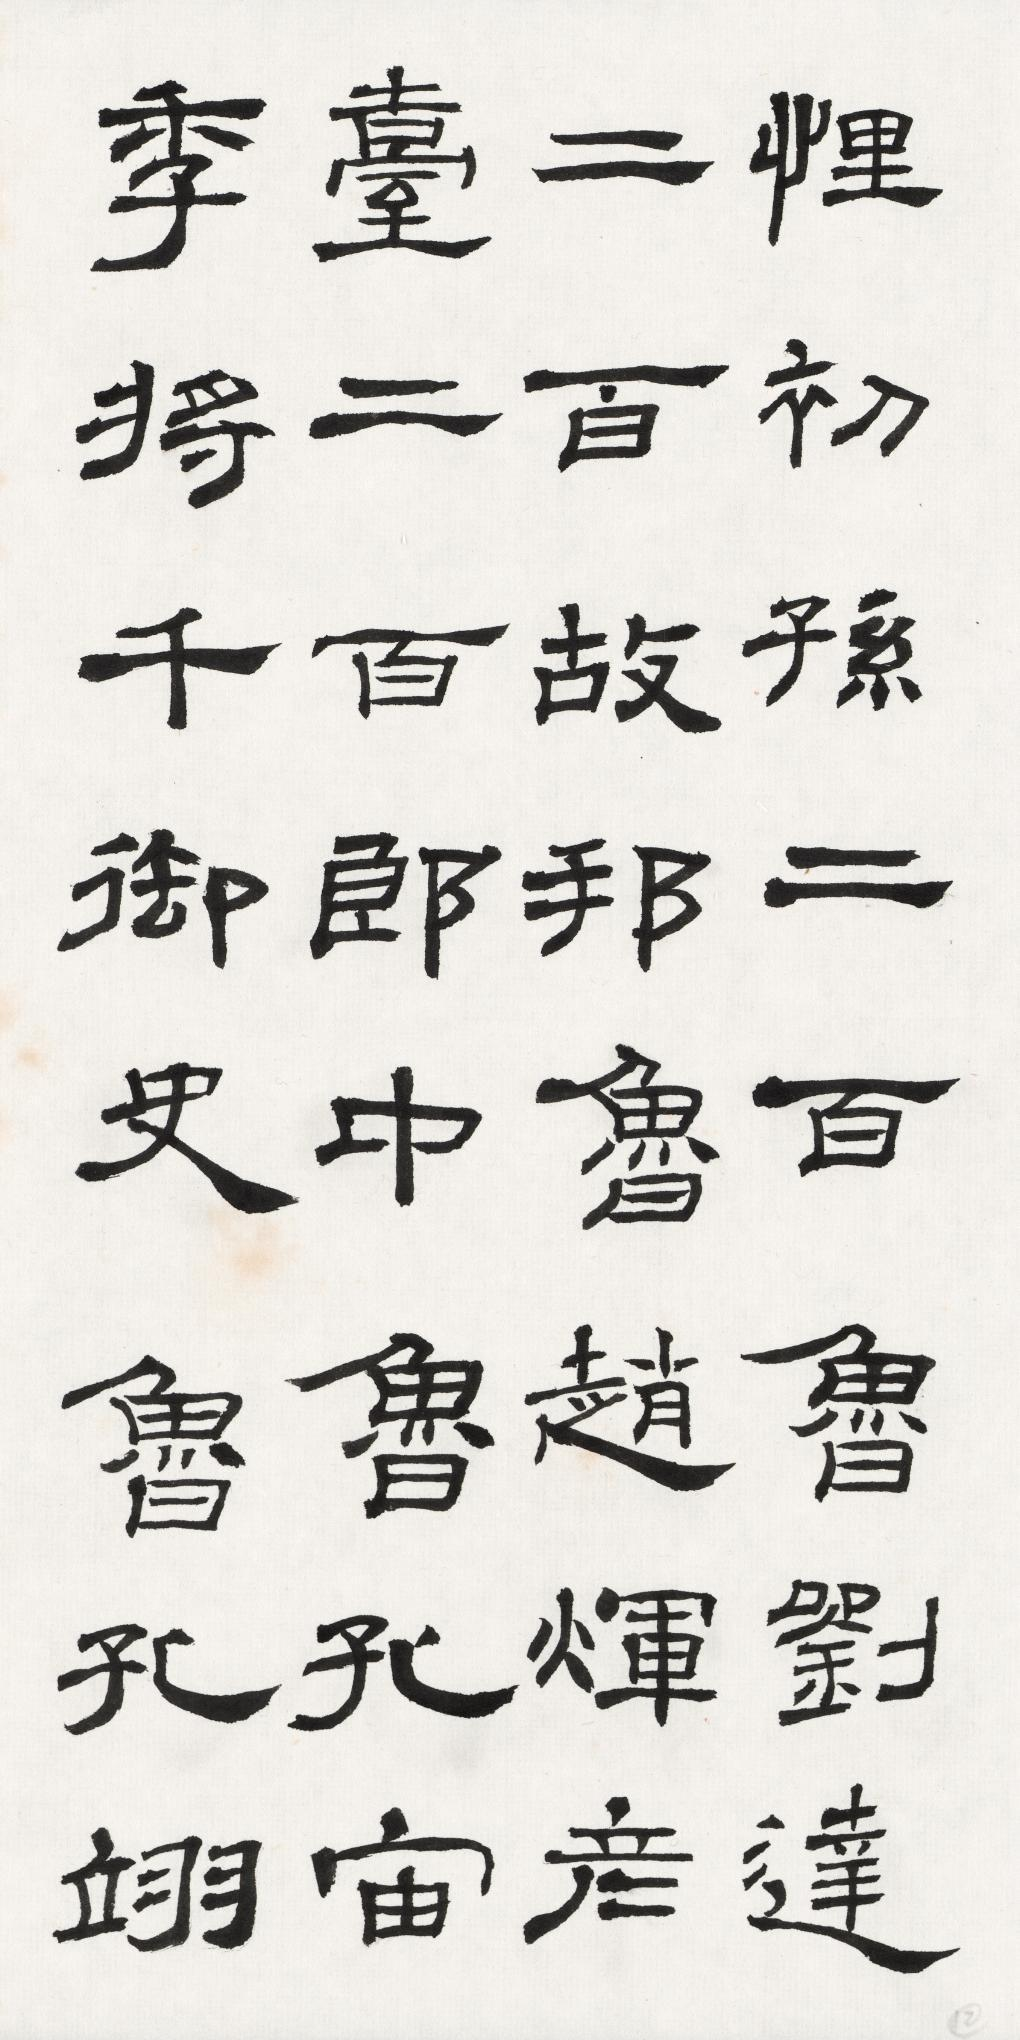 悝初孫二百魯劉達
二百故邦魯趙煇彦
臺二百郎中魯孔宙
季將千御史魯孔翊